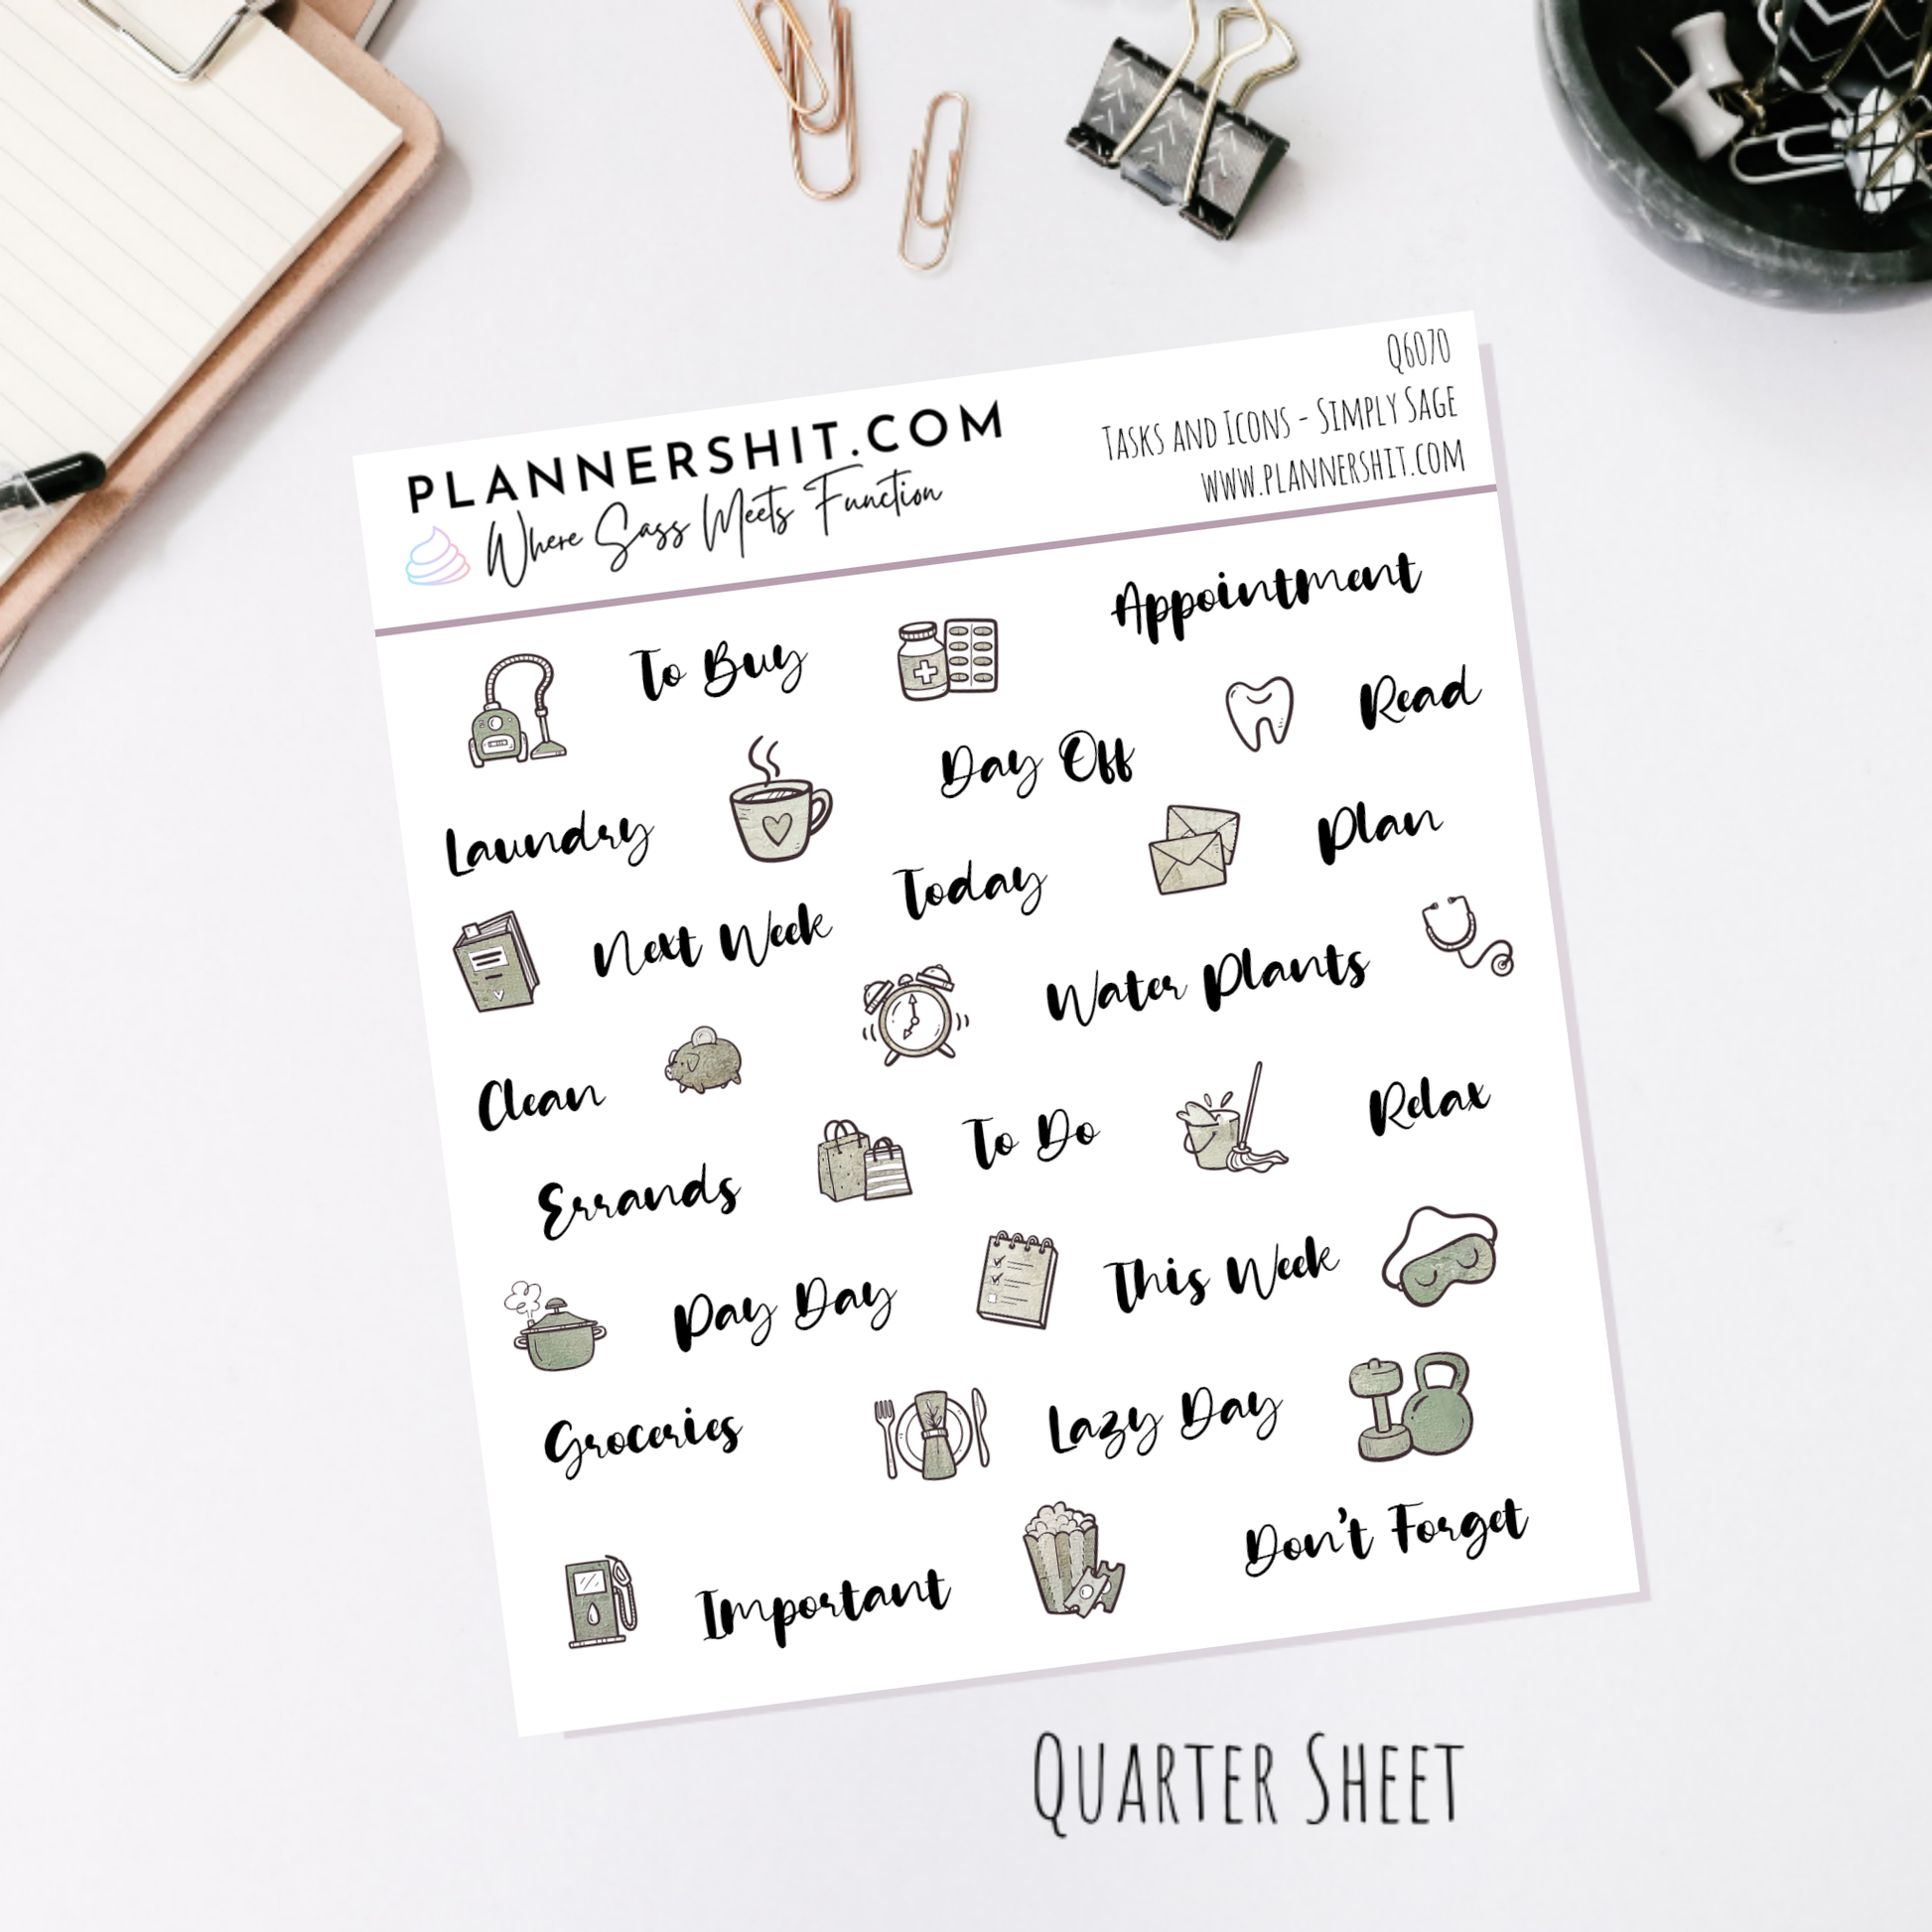 Q6070
PLANNERSHIT.COM
Tasks and Icons - Simply Sage
Where Sass Meets Function
www.plannershit.com
Appointment
To Buy
Read
Day Off
Laundry
Plan
Today
Next Week
Water Plants
Clean
Relax
To Do
Errands
This Week
Pay Day
Lazy Day
Groceries
Don't Forget
Important
Quarter Sheet